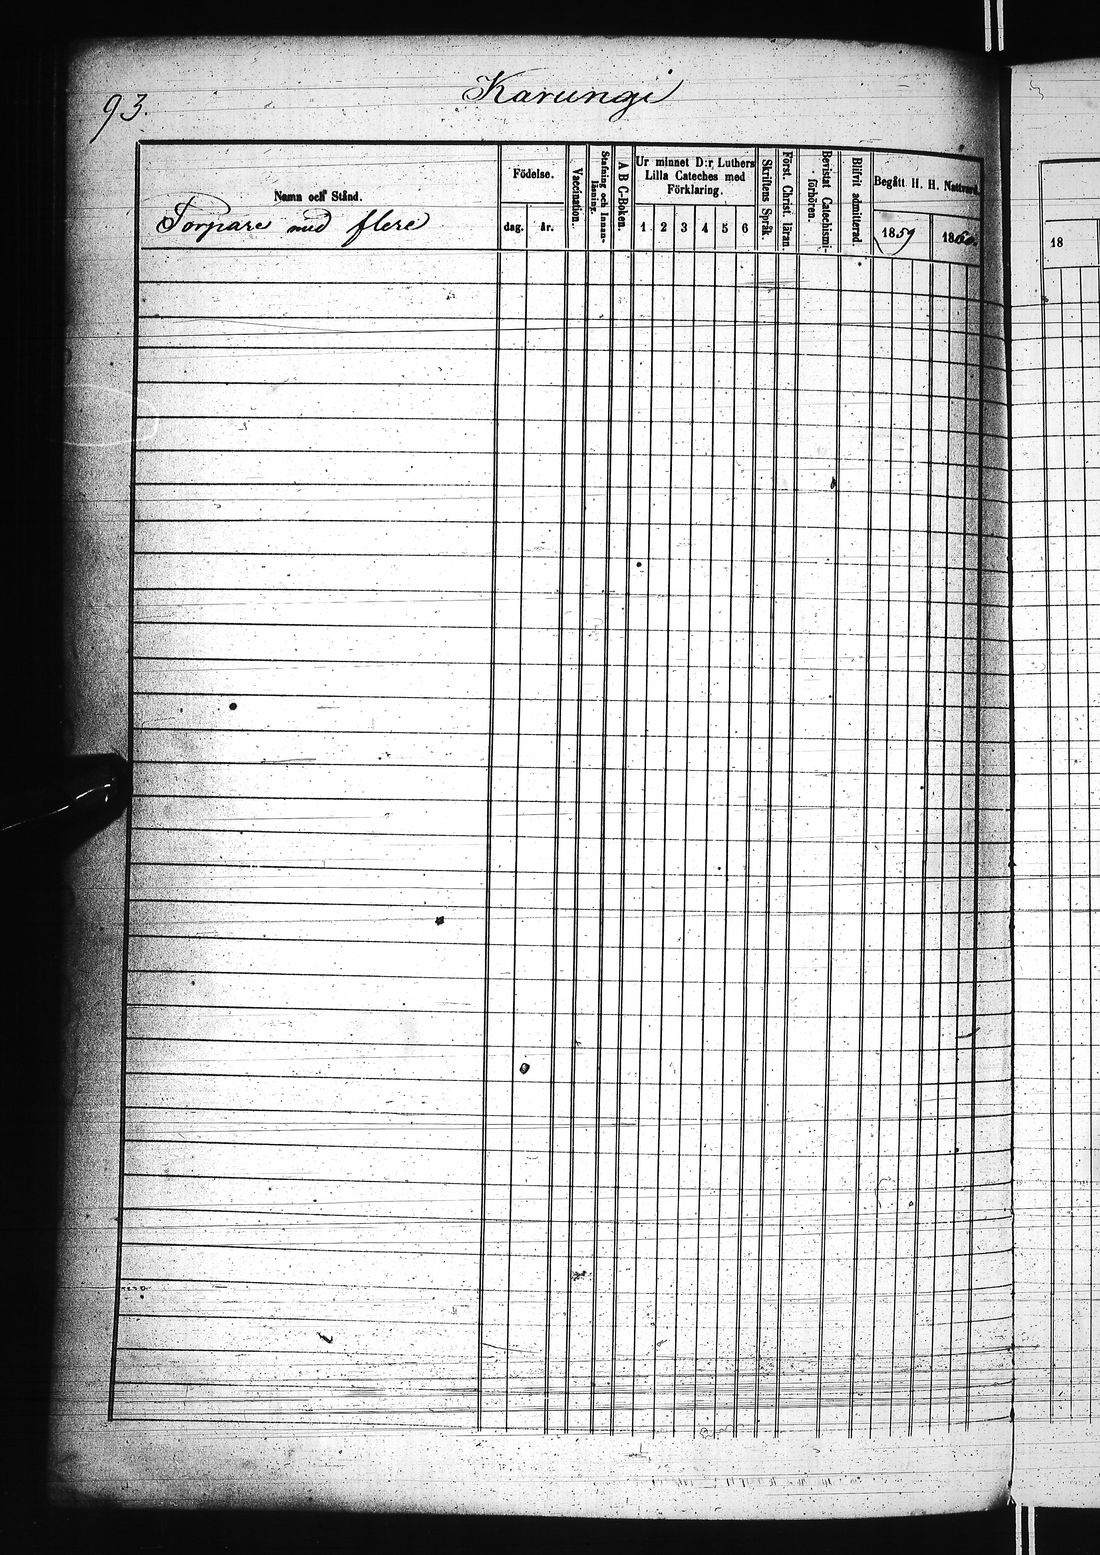 93.
Karungi
Namn och Stånd.
Torpare med flere
Födelse.
dag.
år.
Vaccination.
Stafning och Innan-
läsning.
A B C-Boken.
Ur minnet D:r Luthers
Lilla Cateches med
Förklaring.
1 2 3 4 5 6
Skriftens Språk.
Först. Christ. läran.
Bevistat Catechismi-
förhören.
Blifvit admitterad
Begått H. H. Nattvard.
1859
1860.
18